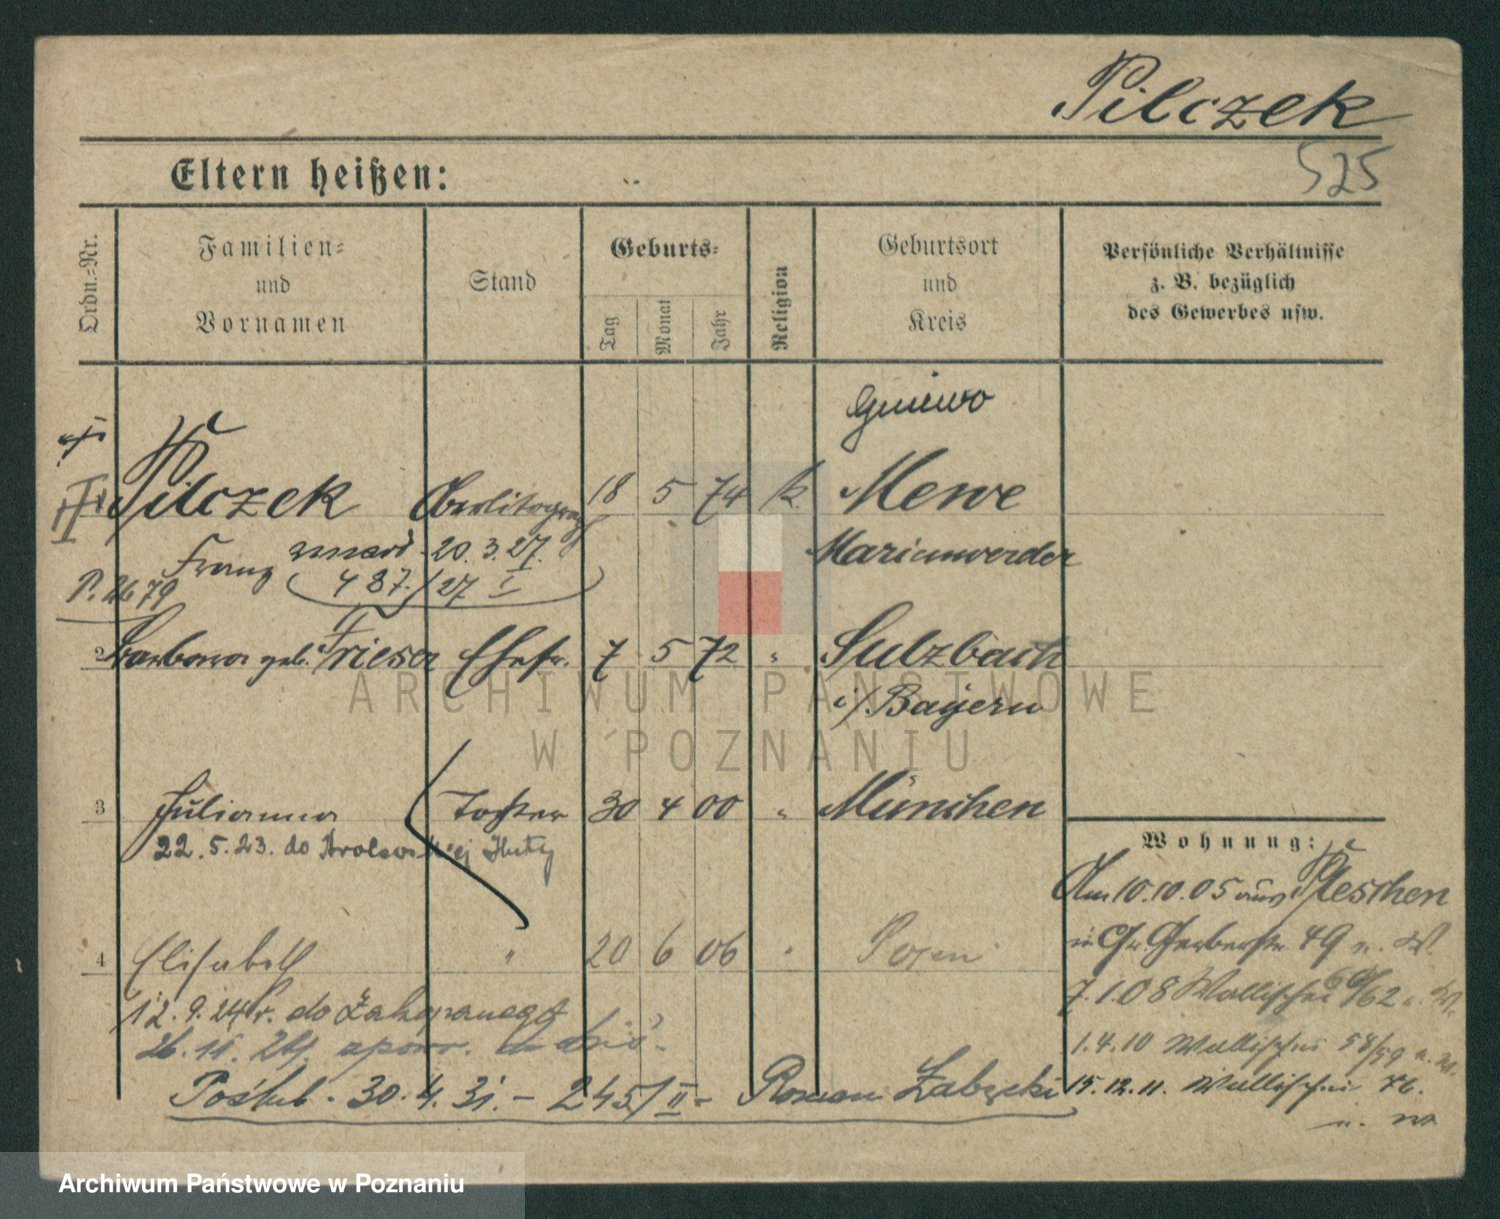 Pilczek
525
Eltern heißen:
Ordn.-Nr.
Familien-
und
Vornamen
Stand
Geburts-
Tag
Monat
Jahr
Religion
Geburtsort
und
Kreis
Persönliche Verhältnisse
z. B. bezüglich
des Gewerbes usw.
Gniewo
Pilczek Oberlitograf 18 5 74 k. Mewe
Franz zmarł 20.3.27. Marienwerder
487./27 I
P. 2679
2 Barbara geb. Friesa Ehefr. 7 5 72 " Sulzbach
i/Bayern
3 Julianna Tochter 30 4 00 " München
22.5.23. do Królewskiej Huty
Wohnung:
Am 10.10.05 aus Pleschen
in Gr. Gerberstr. 49 n. W.
4 Elisabeth " 20 6 06 " Posen
7.1.08 Wallischei 62
12.9.24 r. do Zakopanego
26.11.24
1.4.10 Wallischei 58/59
Poślub. 30.4.31. - 245/II - Roman Zabęcki
15.12.11. Wallischei
ARCHIWUM PAŃSTWOWE
W POZNANIU
Archiwum Państwowe w Poznaniu